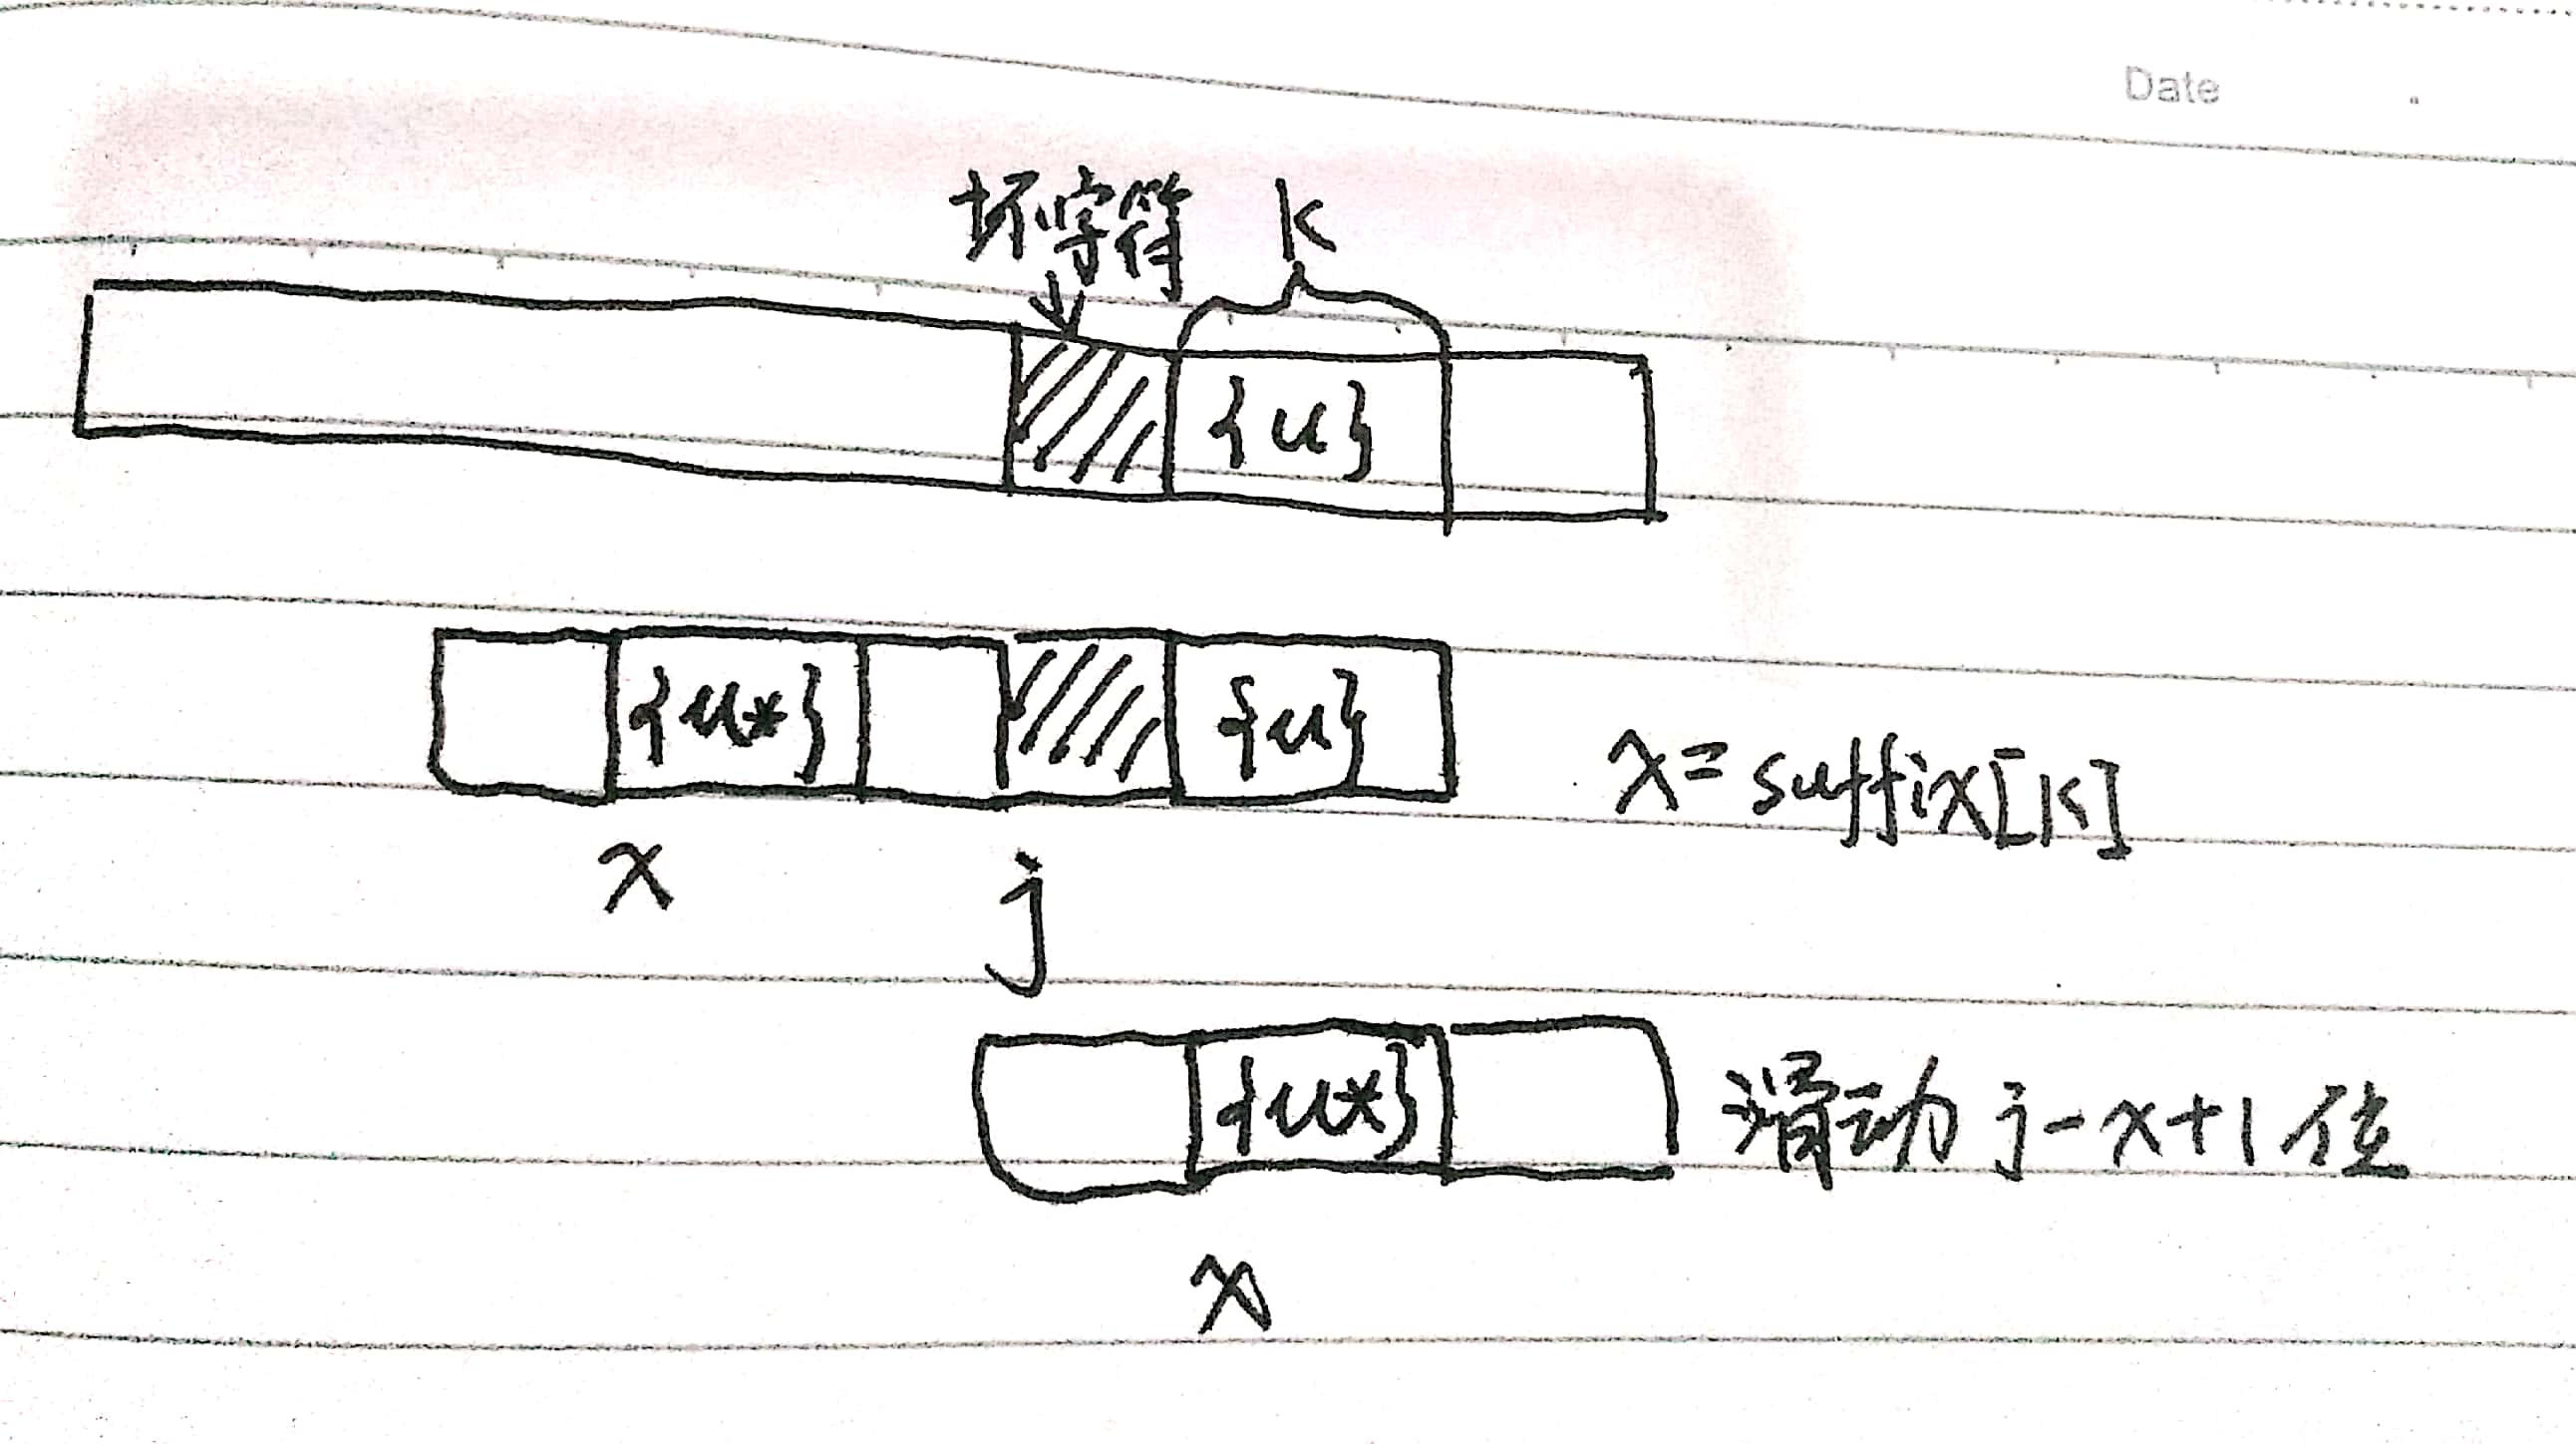 Date
坏字符 K
{u}
{u*} {u}
x = suffix[K]
x j
{u*} 滑动 j-x+1 位
x